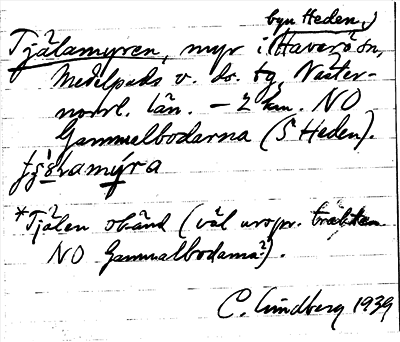 byn Heden,)
Tjälamyren, myr i (Haverö sn,
Medelpads v. ds. tg, Väster-
norrl. län. – 2 km. NO
Gammelbodarna (S Heden).
*Tjälen okänd (väl urspr. trakten
NO Gammalbodarna?).
C. Lindberg 1939